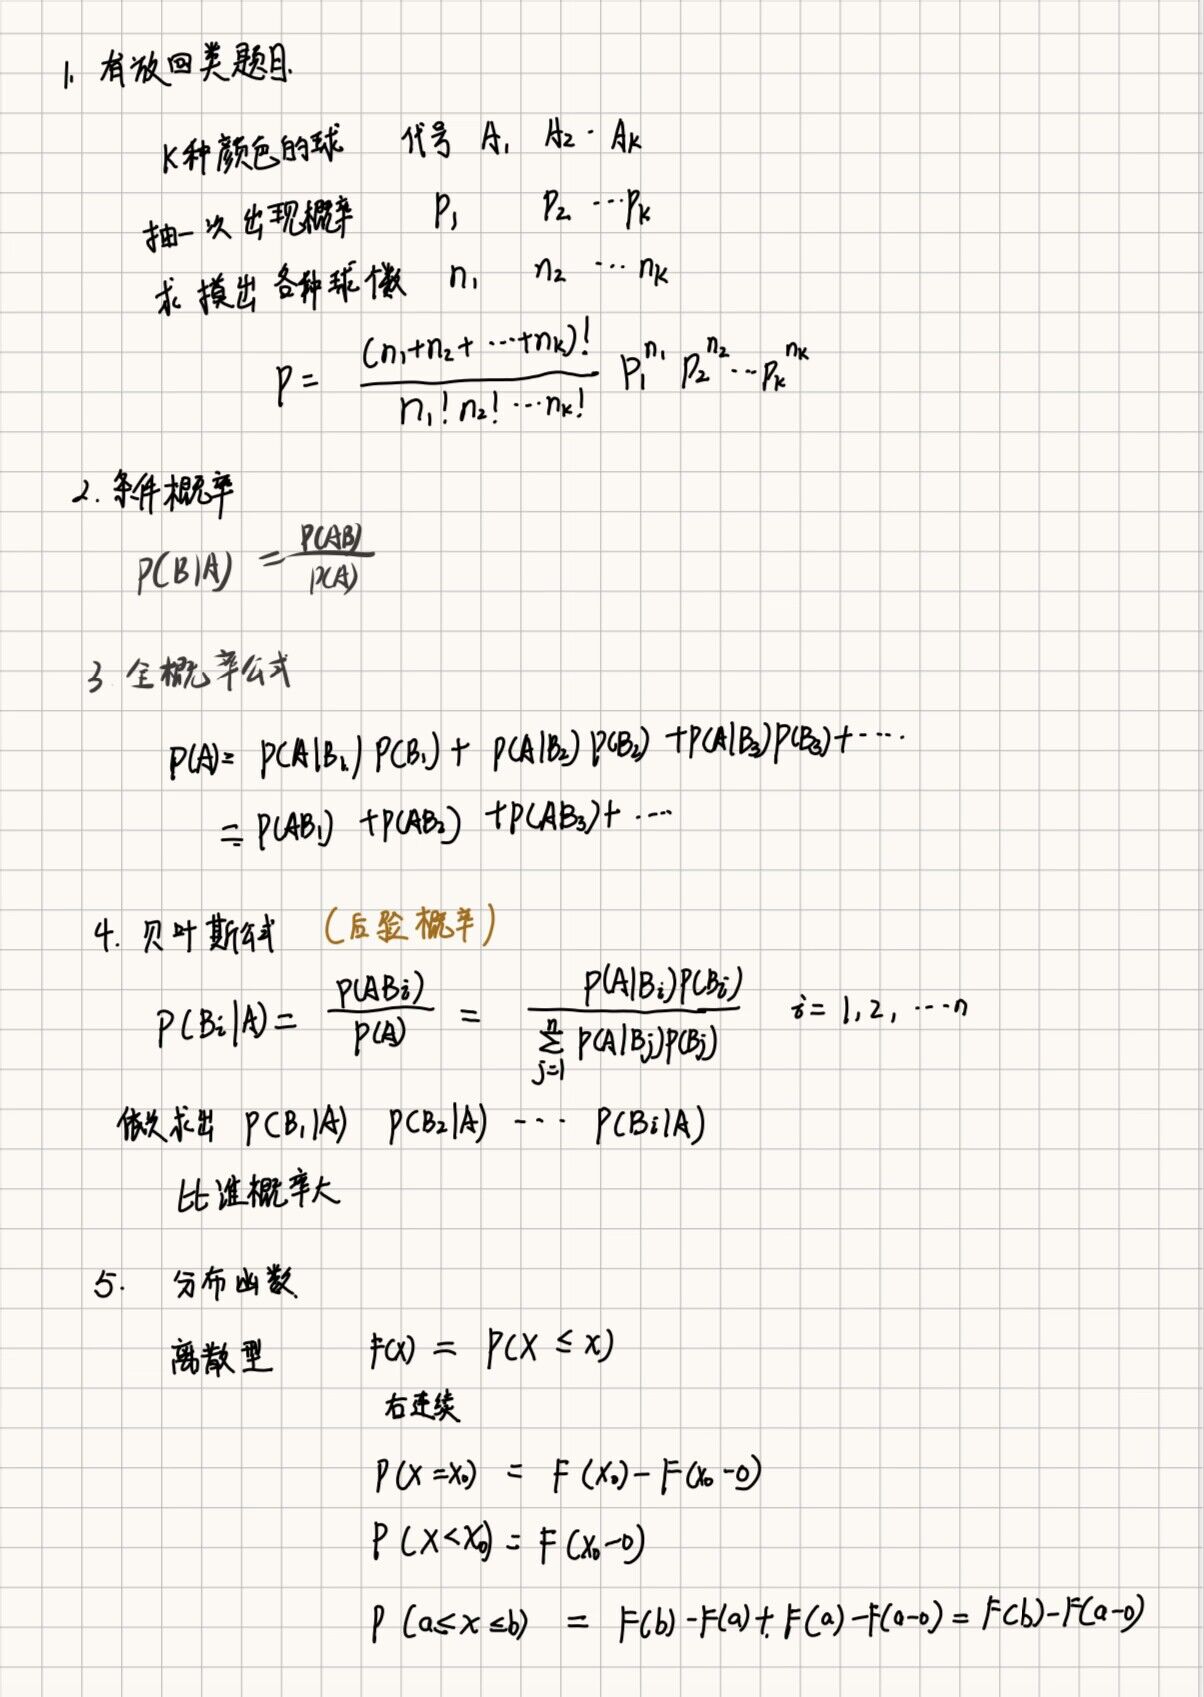 1. 有放回类题目.
K种颜色的球 代号 A₁ A₂ · Aₖ
抽一次出现概率 P₁ P₂ ···Pₖ
求摸出各种球个数 n₁ n₂ ··· nₖ
P = (n₁+n₂+ ···+nₖ)! / n₁! n₂! ···nₖ! P₁^n₁ P₂^n₂ ··· Pₖ^nₖ
2. 条件概率
P(B|A) = P(AB) / P(A)
3 全概率公式
P(A) = P(A|B₁) P(B₁) + P(A|B₂) P(B₂) + P(A|B₃)P(B₃) + ····
= P(AB₁) + P(AB₂) + P(AB₃) + ····
4. 贝叶斯公式 (后验概率)
P(Bi|A) = P(ABi) / P(A) = P(A|Bi)P(Bi) / ∑_{j=1}^{n} P(A|Bj)P(Bj) i = 1, 2, ···n
依次求出 P(B₁|A) P(B₂|A) ··· P(Bi|A)
比谁概率大
5. 分布函数
离散型 F(x) = P(X ≤ x)
右连续
P(X = x₀) = F(x₀) - F(x₀-0)
P(X < x₀) = F(x₀-0)
P(a ≤ x ≤ b) = F(b) - F(a) + F(a) - F(a-0) = F(b) - F(a-0)